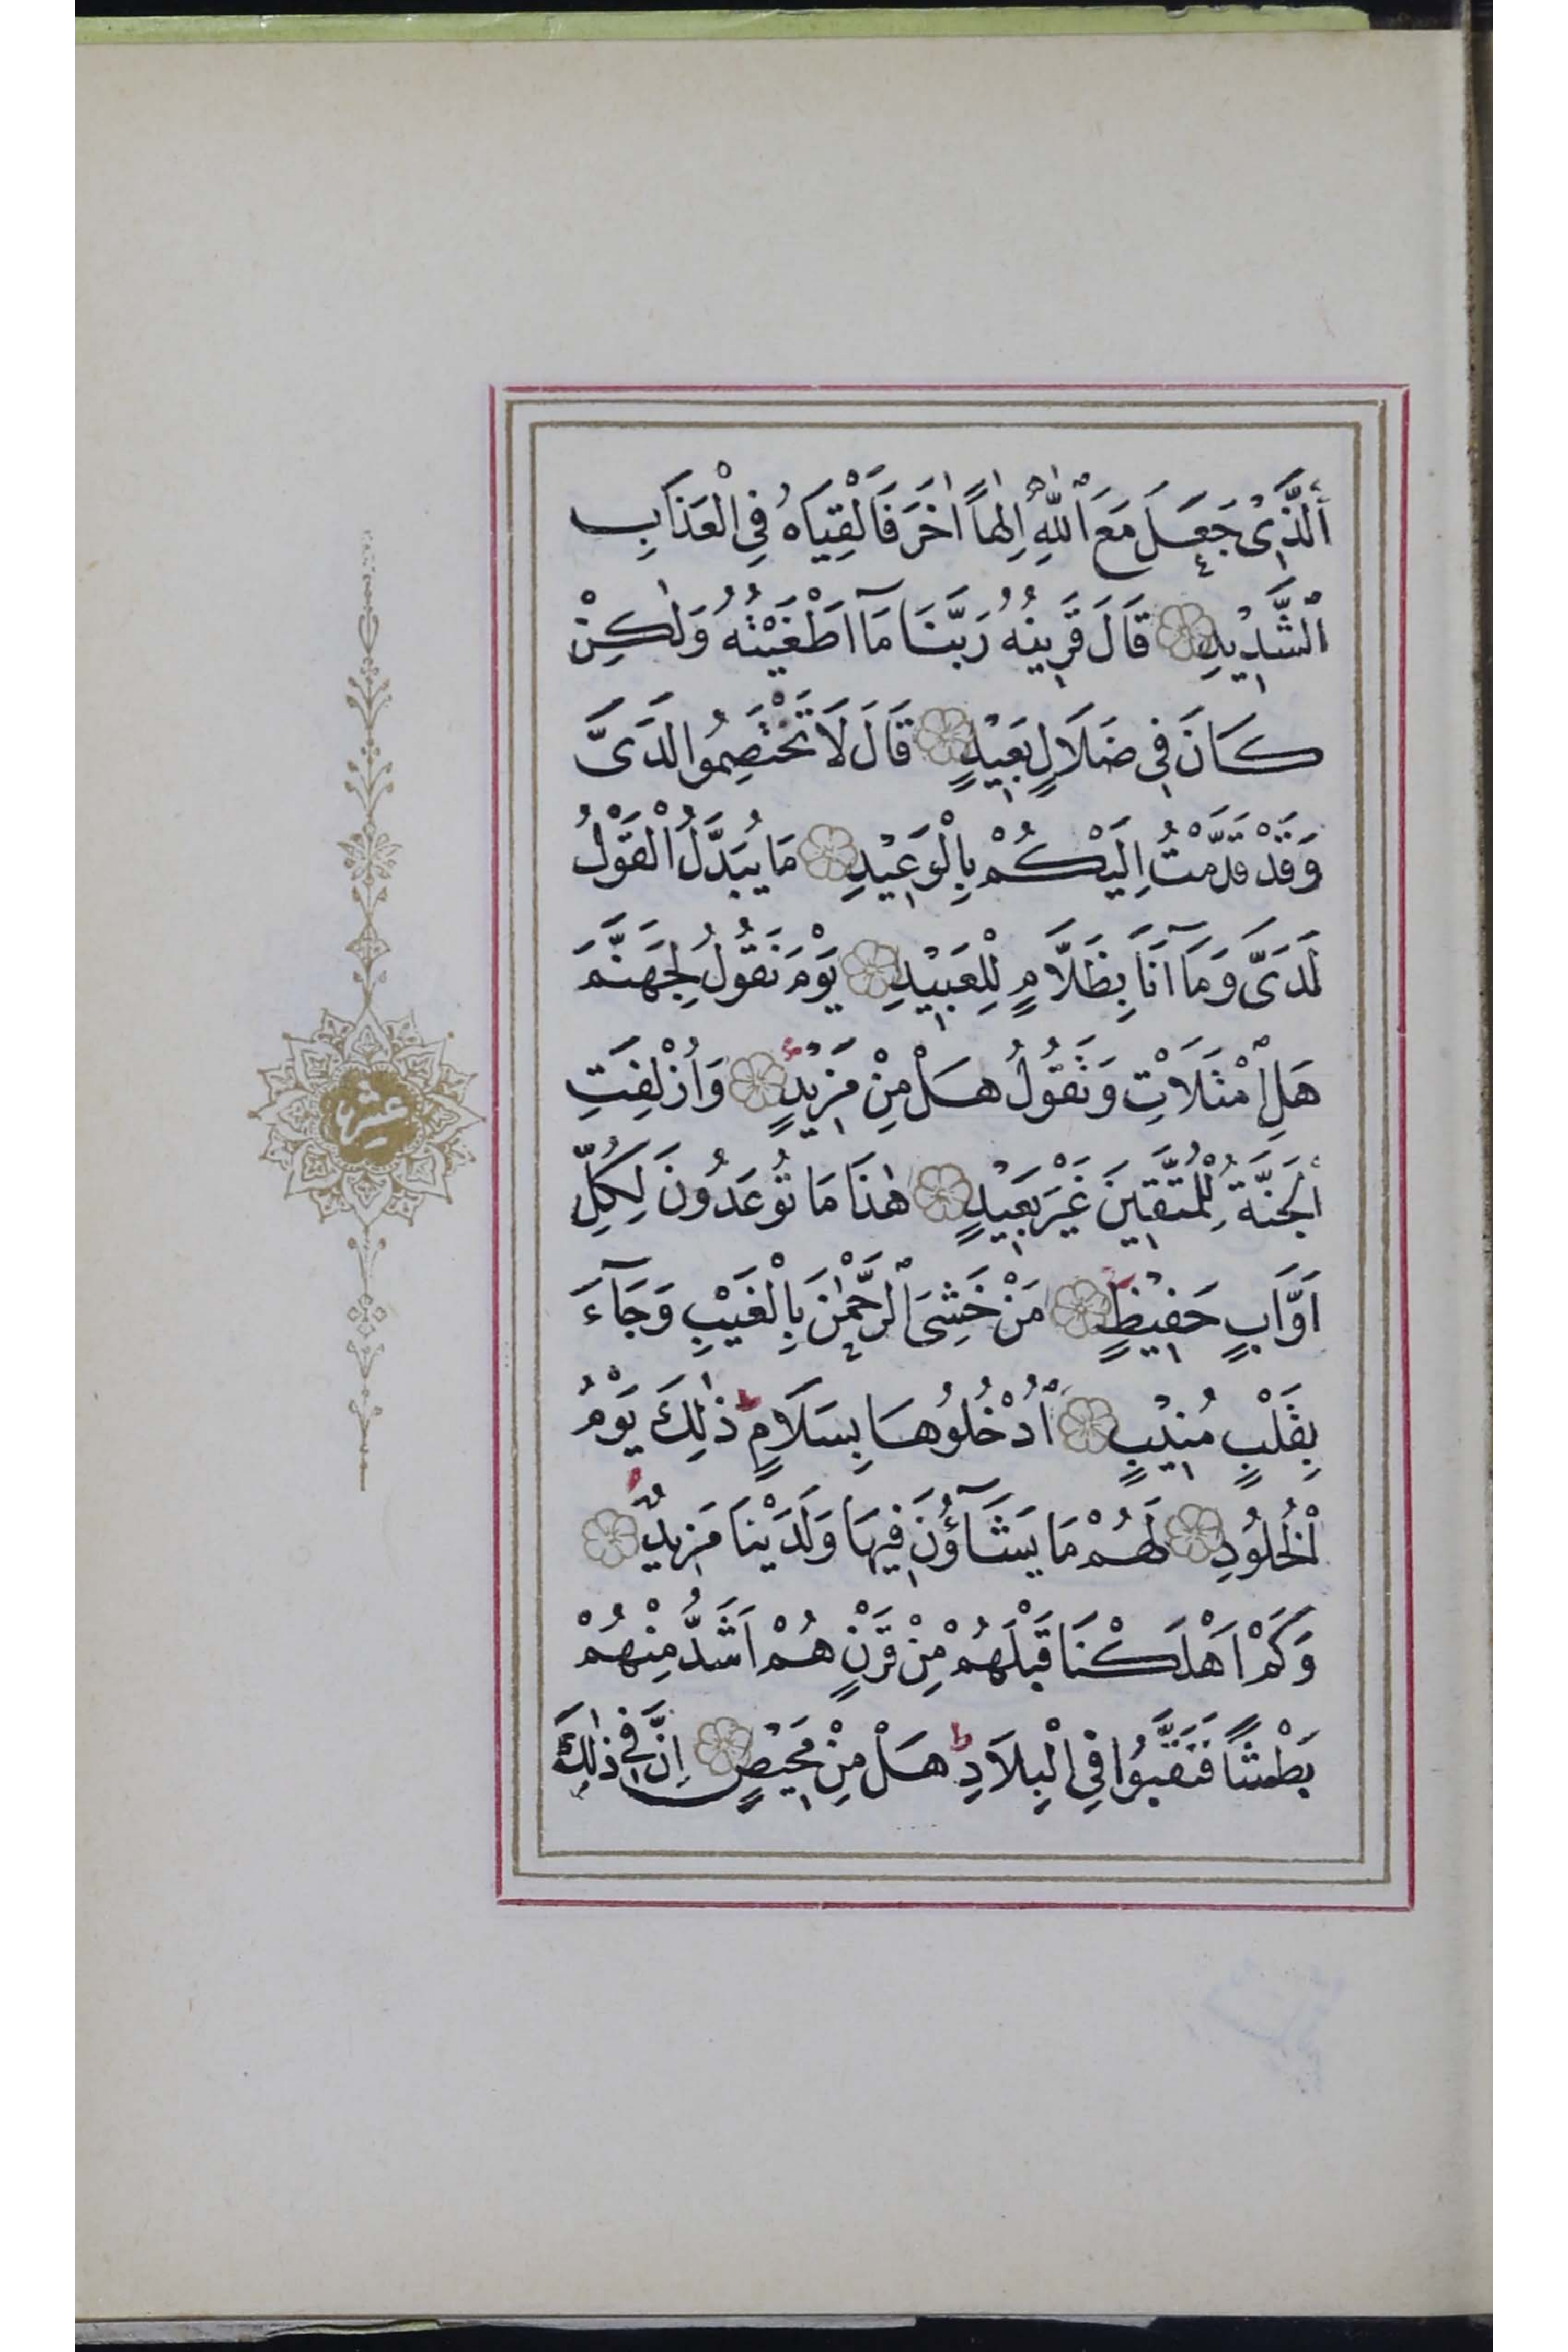 اَلَّذٖى جَعَلَ مَعَ ٱللّٰهِ اِلٰهاً اٰخَرَ فَاَلْقِيَاهُ فِى الْعَذَابِ
ٱلشَّدٖيدِ قَالَ قَرٖينُهُ رَبَّنَا مَٓا اَطْغَيْتُهُ وَلٰكِنْ
كَانَ فٖى ضَلَالٍ بَعٖيدٍ قَالَ لَا تَخْتَصِمُوا لَدَىَّ
وَقَدْ قَدَّمْتُ اِلَيْكُمْ بِالْوَعٖيدِ مَا يُبَدَّلُ الْقَوْلُ
لَدَىَّ وَمَٓا اَنَا بِظَلَّامٍ لِلْعَبٖيدِ يَوْمَ نَقُولُ لِجَهَنَّمَ
هَلِ امْتَلَاْتِ وَتَقُولُ هَلْ مِنْ مَزٖيدٍ وَاُزْلِفَتِ
الْجَنَّةُ لِلْمُتَّقٖينَ غَيْرَ بَعٖيدٍ هٰذَا مَا تُوعَدُونَ لِكُلِّ
اَوَّابٍ حَفٖيظٍ مَنْ خَشِىَ ٱلرَّحْمٰنَ بِالْغَيْبِ وَجَٓاءَ
بِقَلْبٍ مُنٖيبٍ ٱدْخُلُوهَا بِسَلَامٍ ط ذٰلِكَ يَوْمُ
الْخُلُودِ لَهُمْ مَا يَشَٓاؤُنَ فٖيهَا وَلَدَيْنَا مَزٖيدٌ
وَكَمْ اَهْلَكْنَا قَبْلَهُمْ مِنْ قَرْنٍ هُمْ اَشَدُّ مِنْهُمْ
بَطْشًا فَنَقَّبُوا فِى الْبِلَادِ ط هَلْ مِنْ مَحٖيصٍ اِنَّ فٖى ذٰلِكَ
عشر